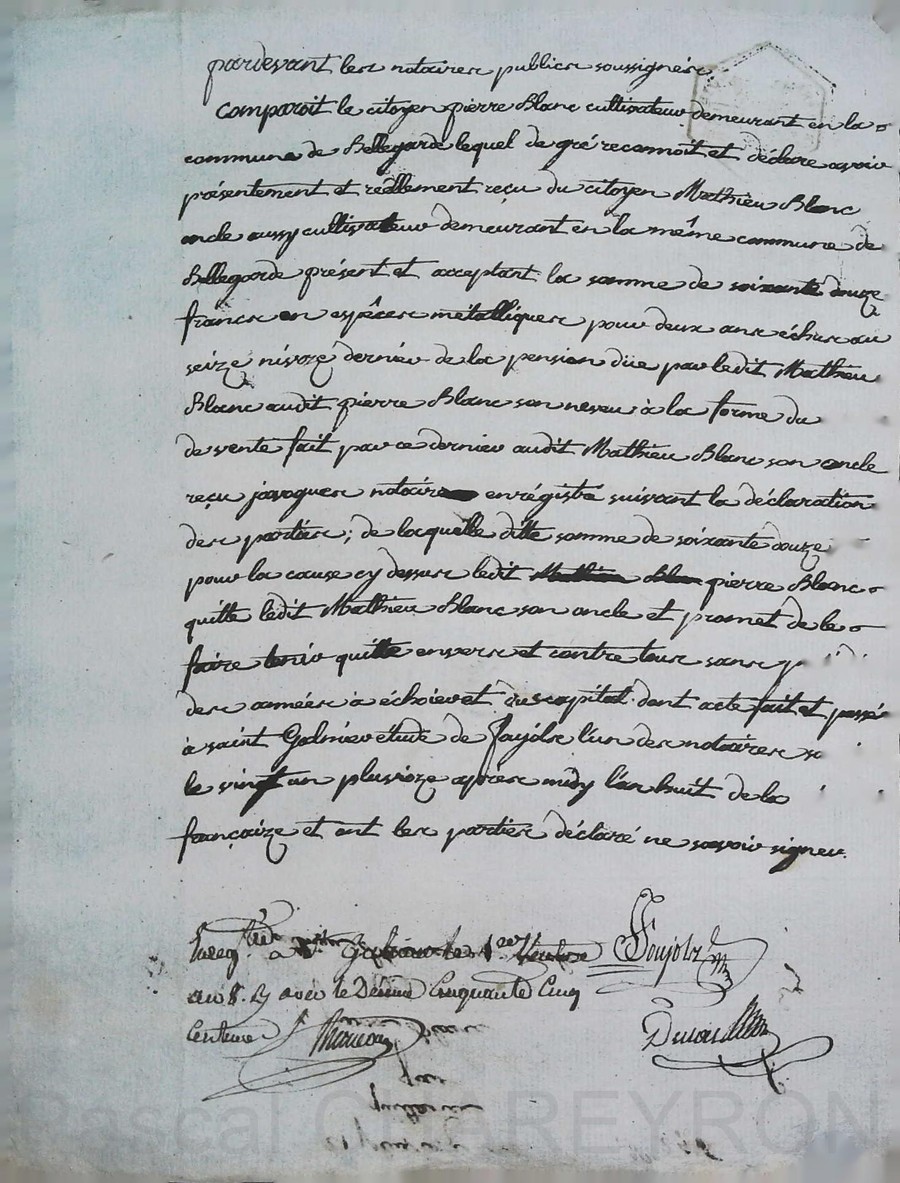 pardevant les notaires publics soussignés
comparoit le citoyen pierre Blanc cultivateur demeurant en la
commune de Bellegarde lequel de gré reconnoit et déclare avoir
présentement et réellement reçu du citoyen Mathieu Blanc
oncle aussy cultivateur demeurant en la même commune de
Bellegarde présent et acceptant la somme de soixante douze
francs en espêces métalliques pour deux ans échus au
seize nivoze dernier de la pension düe par ledit Mathieu
Blanc audit pierre Blanc son neveu à la forme du
de vente fait par ce dernier audit Mathieu Blanc son oncle
reçu javogues notaire enrégistré suivant la déclaration
des parties; de laquelle ditte somme de soixante douze
pour la cause cy dessus ledit pierre Blanc
quitte ledit Mathieu Blanc son oncle et promet de le
faire tenir quitte envers et contre tous sans
des années à échoir et du capital dont acte fait et passé
à saint Galmier étude de l'un des notaires
le vingt un pluvioze après midy l'an huit de la
françaize et ont les parties déclaré ne savoir signer.
le 1er Ventose
an 8. avec le Décime Cinquante Cinq
Centimes
Pascal CHAREYRON